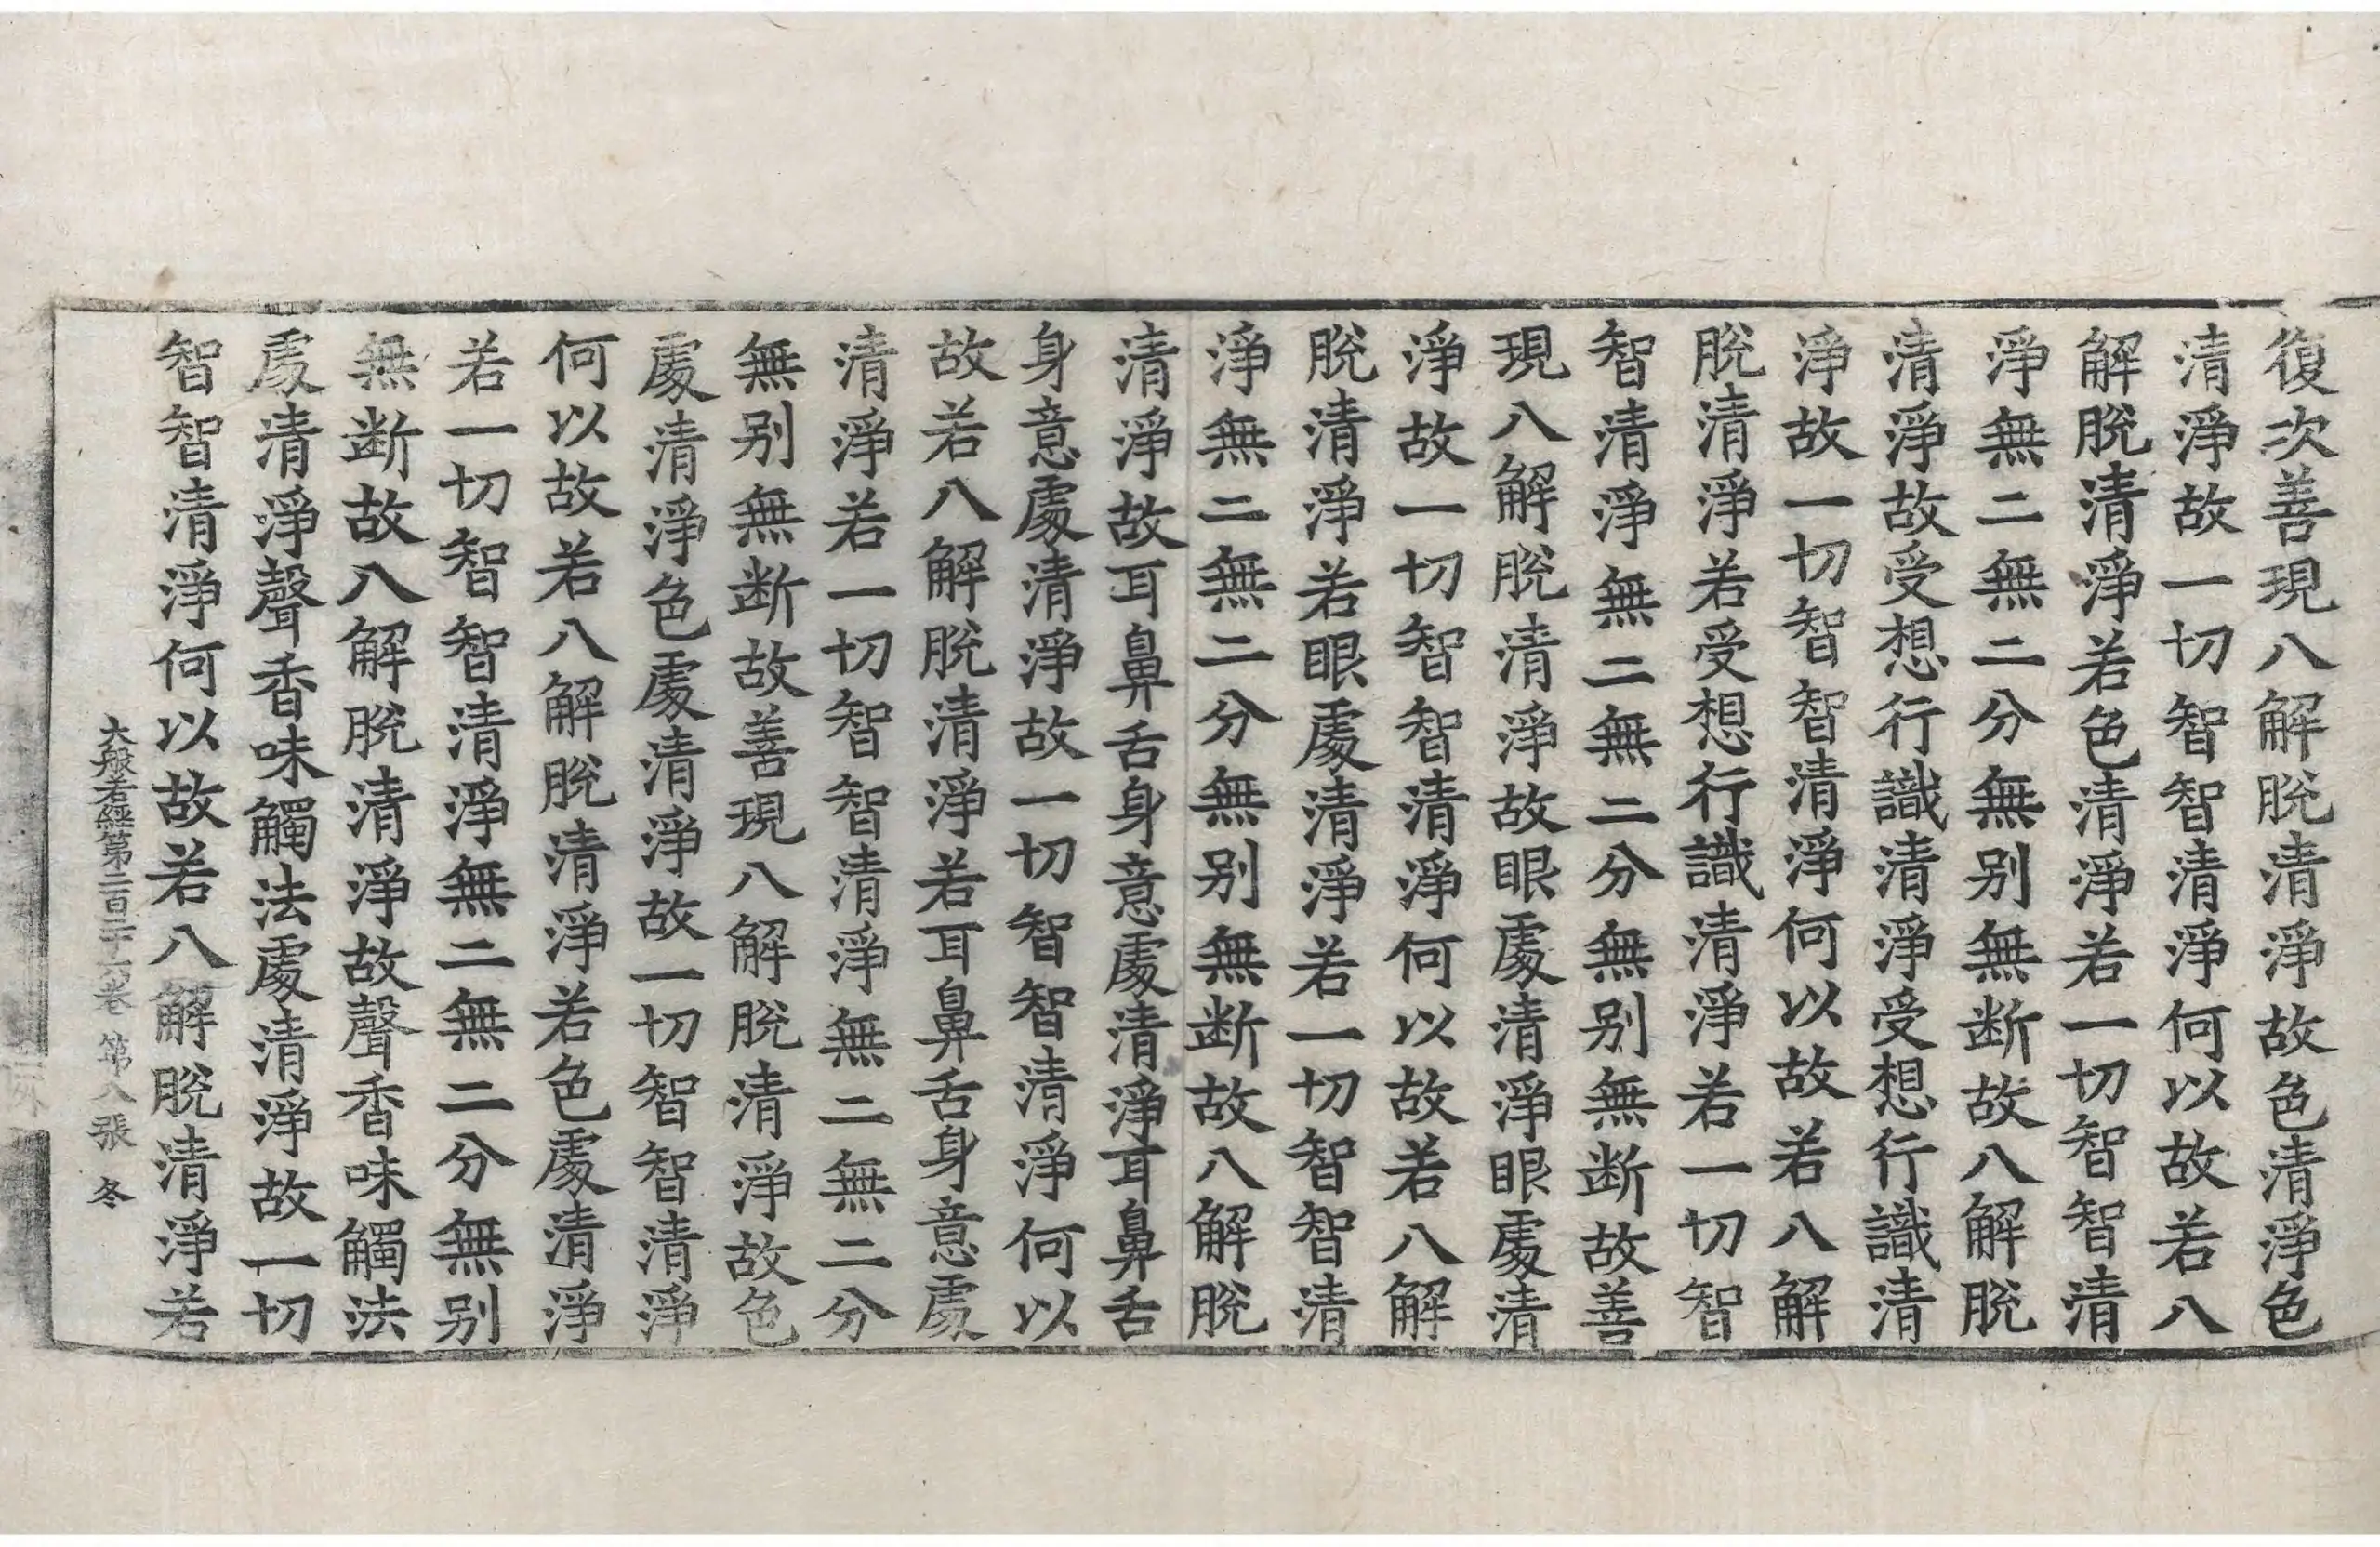 復次善現八解脫清淨故色清淨色
清淨故一切智智清淨何以故若八
解脫清淨若色清淨若一切智智清
淨無二無二分無别無断故八解脫
清淨故受想行識清淨受想行識清
淨故一切智智清淨何以故若八解
脫清淨若受想行識清淨若一切智
智清淨無二無二分無别無断故善
現八解脫清淨故眼處清淨眼處清
淨故一切智智清淨何以故若八解
脫清淨若眼處清淨若一切智智清
淨無二無二分無别無断故八解脫
清淨故耳鼻舌身意處清淨耳鼻舌
身意處清淨故一切智智清淨何以
故若八解脫清淨若耳鼻舌身意處
清淨若一切智智清淨無二無二分
無别無断故善現八解脫清淨故色
處清淨色處清淨故一切智智清淨
何以故若八解脫清淨若色處清淨
若一切智智清淨無二無二分無别
無断故八解脫清淨故聲香味觸法
處清淨聲香味觸法處清淨故一切
智智清淨何以故若八解脫清淨若
大般若經第二百二十六卷 第八張 冬